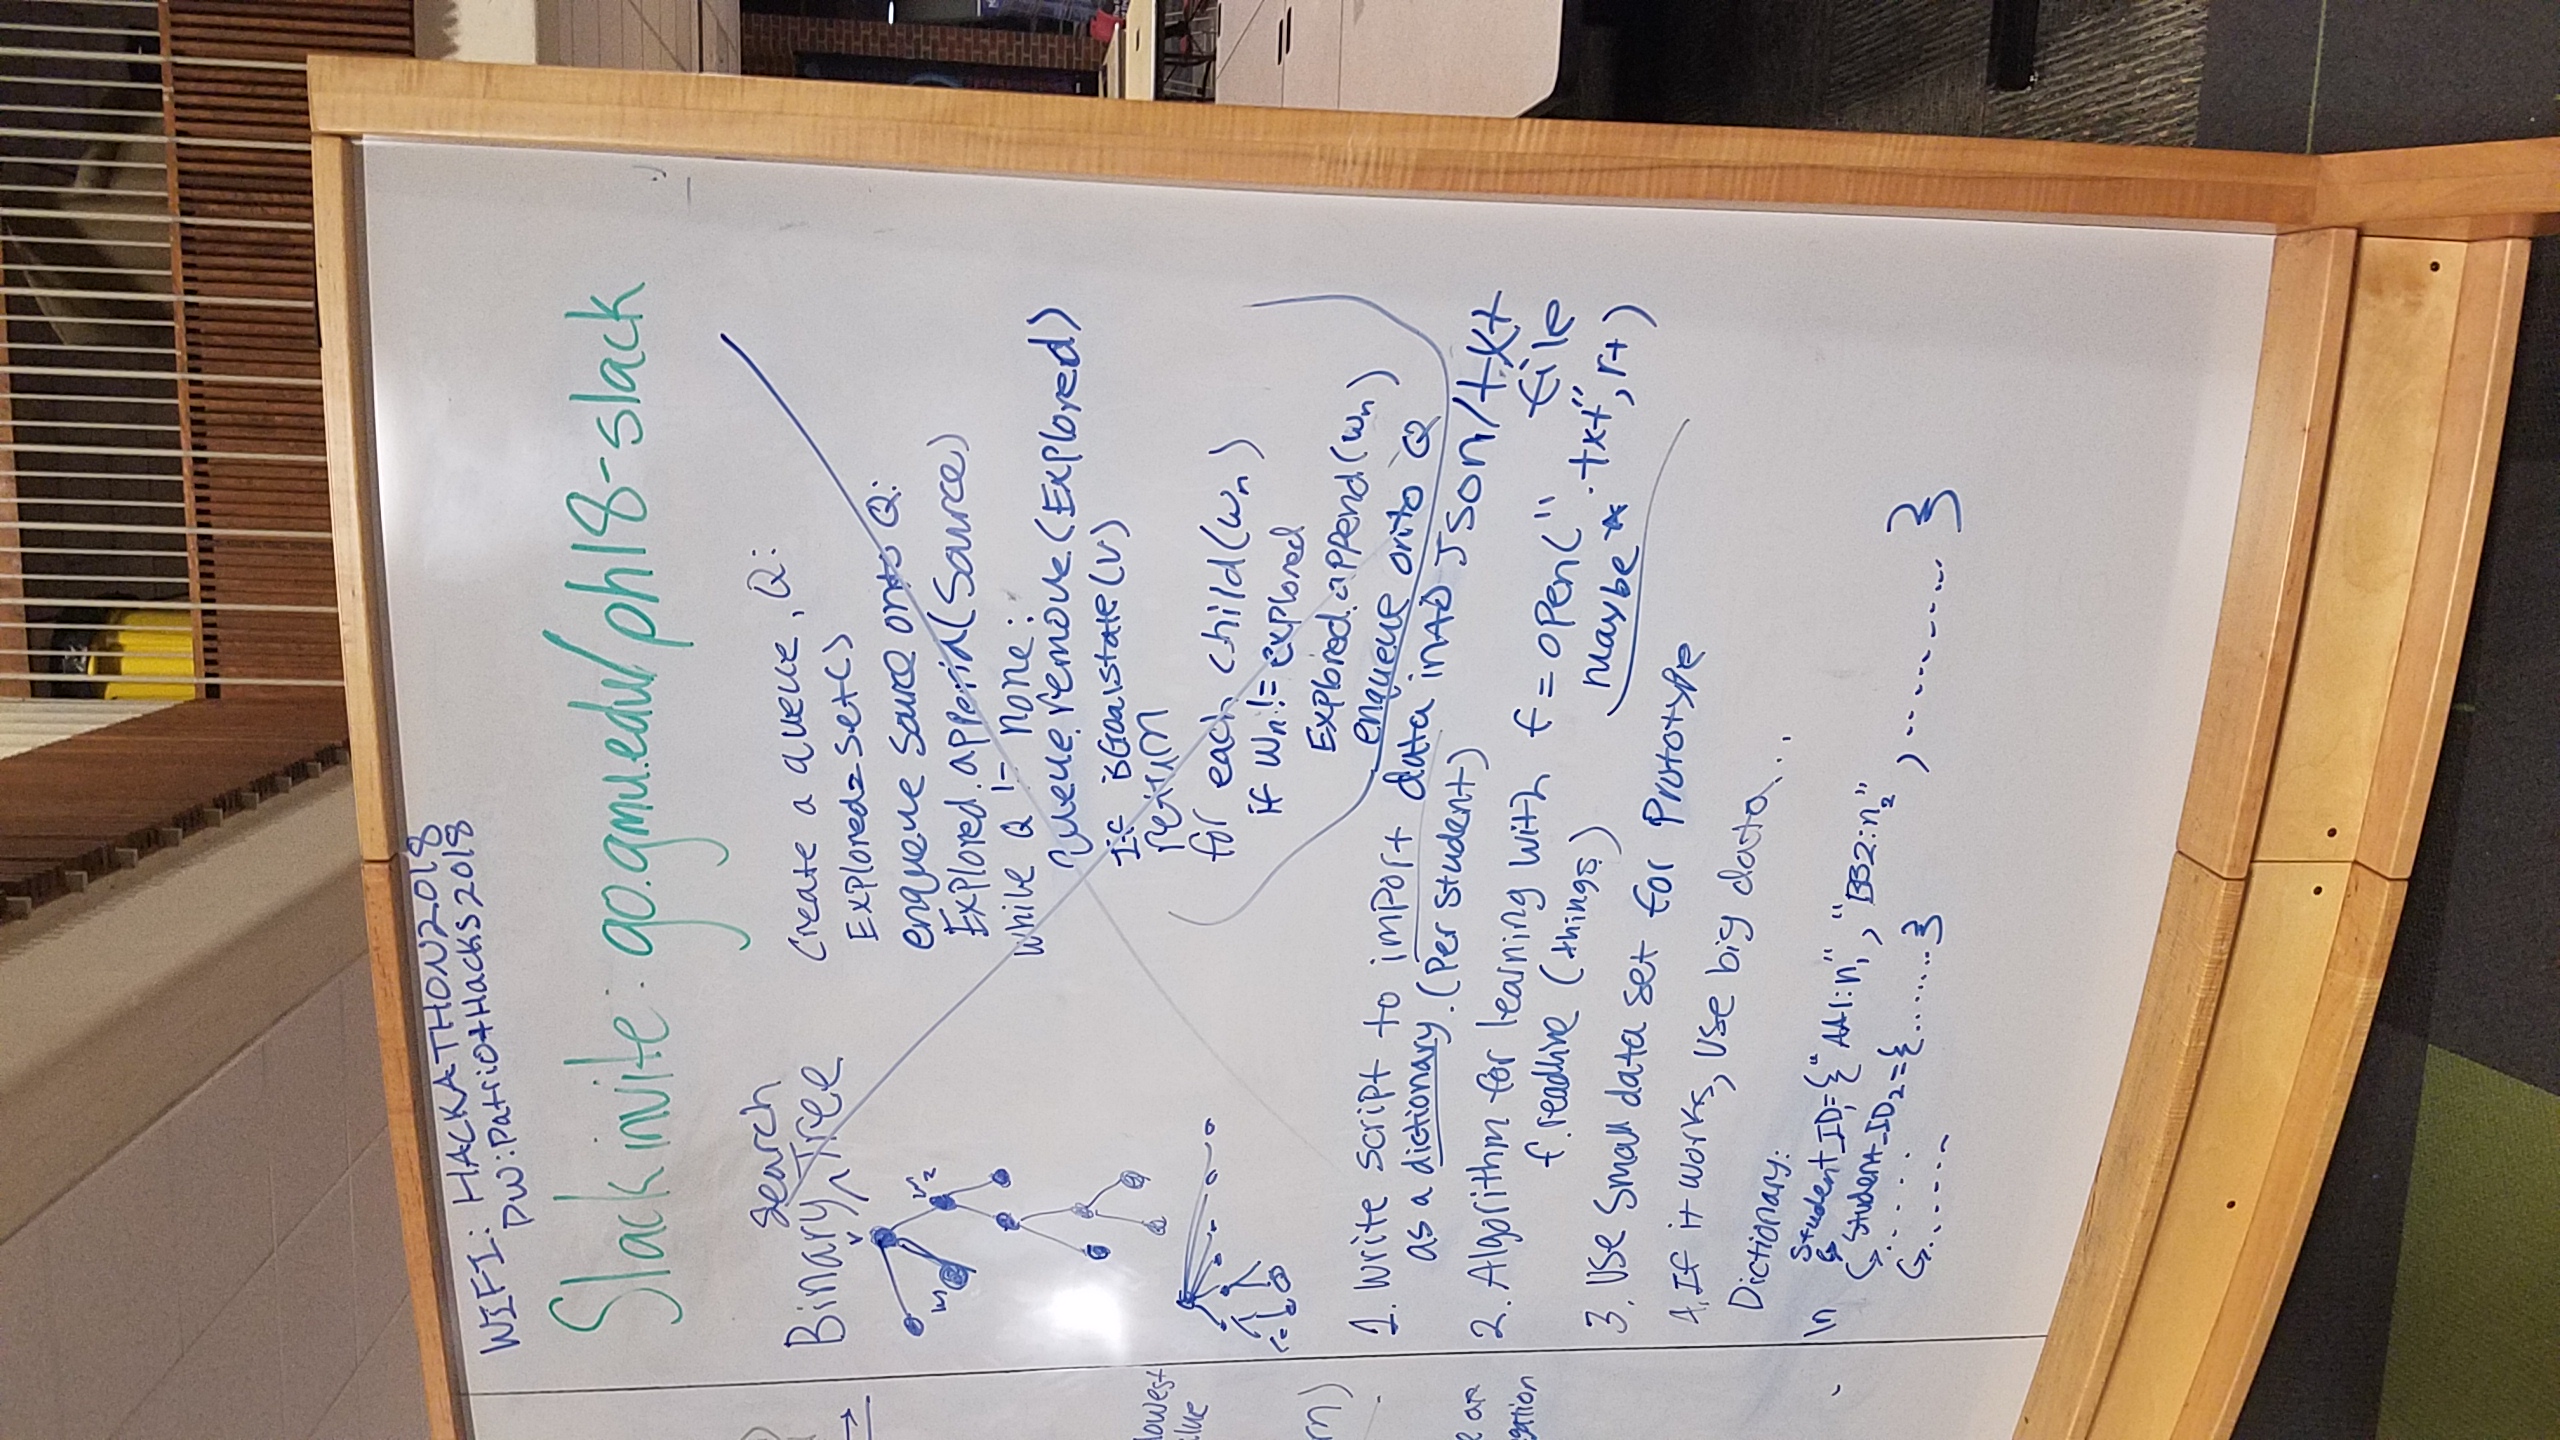 WIFI: HACKATHON2018
PW: PatriotHacks2018
Slack invite: go.gmu.edu/ph18-slack
Search
Binary Tree
v
v2
w
Create a queue, Q:
Explored=set()
enqueue source onto Q:
Explored.append(Source)
While Q != none:
queue.remove(Explored)
If isGoalstate(v)
return
for each child(wn)
if wn != explored
Explored.append(wn)
enqueue onto Q
1. Write script to import data in AD JSON/txt file
as a dictionary. (Per student)
2. Algorithm for learning with f = open(" .txt", r+)
maybe *
f.readline (things)
3. Use small data set for Prototype
4. If it works, use big data...
Dictionary:
In Student_ID1={"AA1:n1", "BB2:n2", ......... }
Student_ID2={.......}
lowest